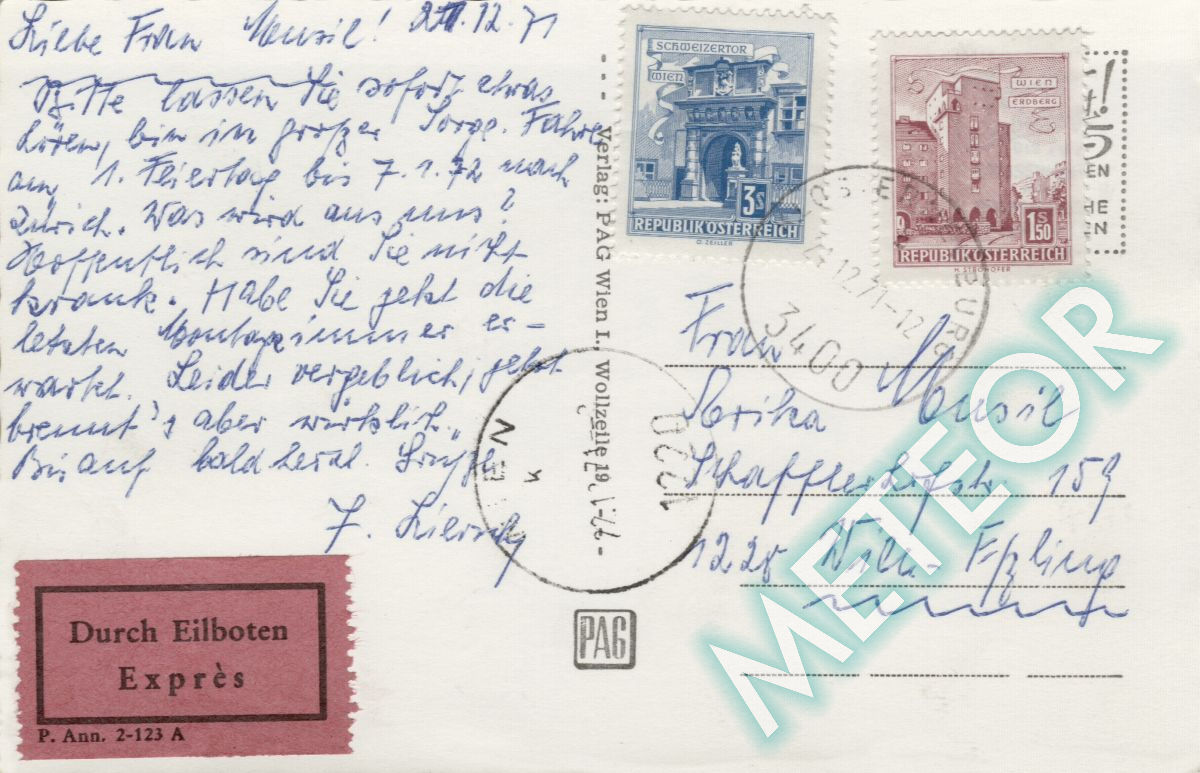 Liebe Frau Musil! 21.12.71
Bitte lassen Sie sofort etwas
hören, bin in großer Sorge. Fahre
am 1. Feiertag bis 7.1.72 nach
Zürich. Was wird aus uns?
Hoffentlich sind Sie nicht
krank. Habe Sie jetzt die
letzten Montage immer er-
wartet. Leider vergeblich, jetzt
brennt's aber wirklich.
Bis auf bald herzl.
F.
Durch Eilboten
Exprès
P. Ann. 2-123 A
Verlag: PAG Wien I., Wollzeile 19
PAG
SCHWEIZERTOR
WIEN
3s
REPUBLIK ÖSTERREICH
O. ZEILLER
WIEN
ERDBERG
1s50
REPUBLIK ÖSTERREICH
H. STROHOFER
12.71-12
3400
1220
Frau
Musil
Schafflerhofstr 159
1228 Wien-Eßling
METEOR